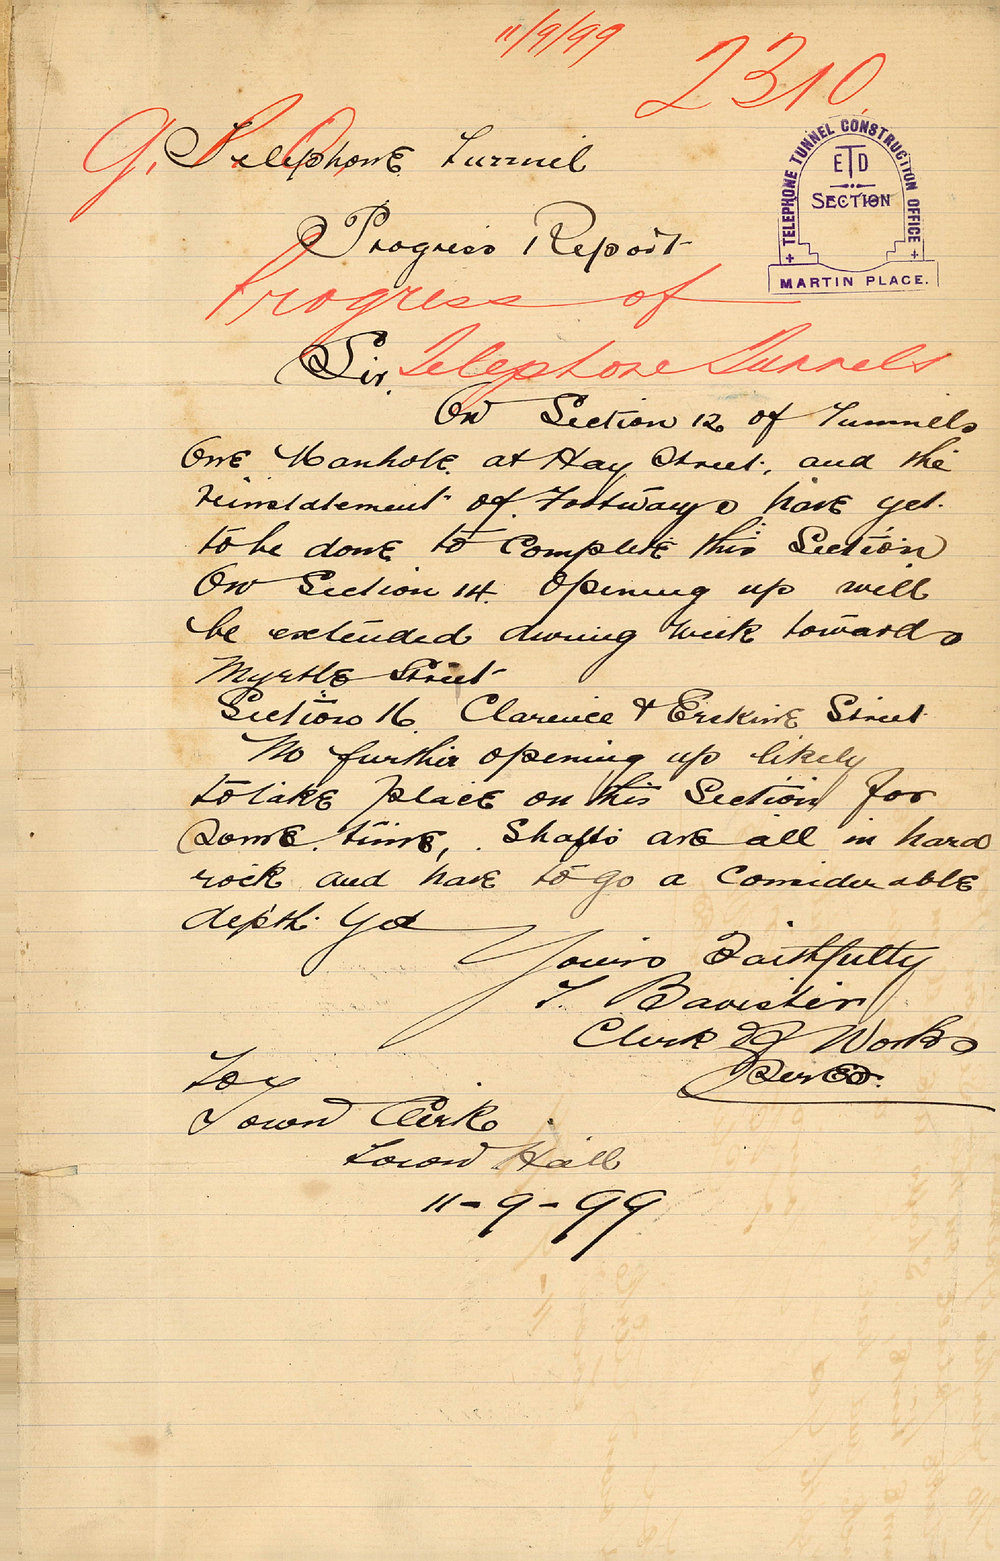 11/9/99
2310
G. P. O.
TELEPHONE TUNNEL CONSTRUCTION OFFICE
ETD
SECTION
MARTIN PLACE.
Telephone Tunnel
Progress Report
Progress of
Telephone Tunnels
Sir,
On Section 12 of Tunnels
One Manhole at Hay Street, and the
reinstatement of Footways have yet
to be done to complete this Section
On Section 14. Opening up will
be extended during week towards
Myrtle Street
Section 16 Clarence & Erskine Street
No further opening up likely
to take place on this Section for
some time, Shafts are all in hard
rock and have to go a considerable
depth yet
Yours Faithfully
T. Bavister
Clerk of Works
Per ED.
To
Town Clerk
Town Hall
11-9-99